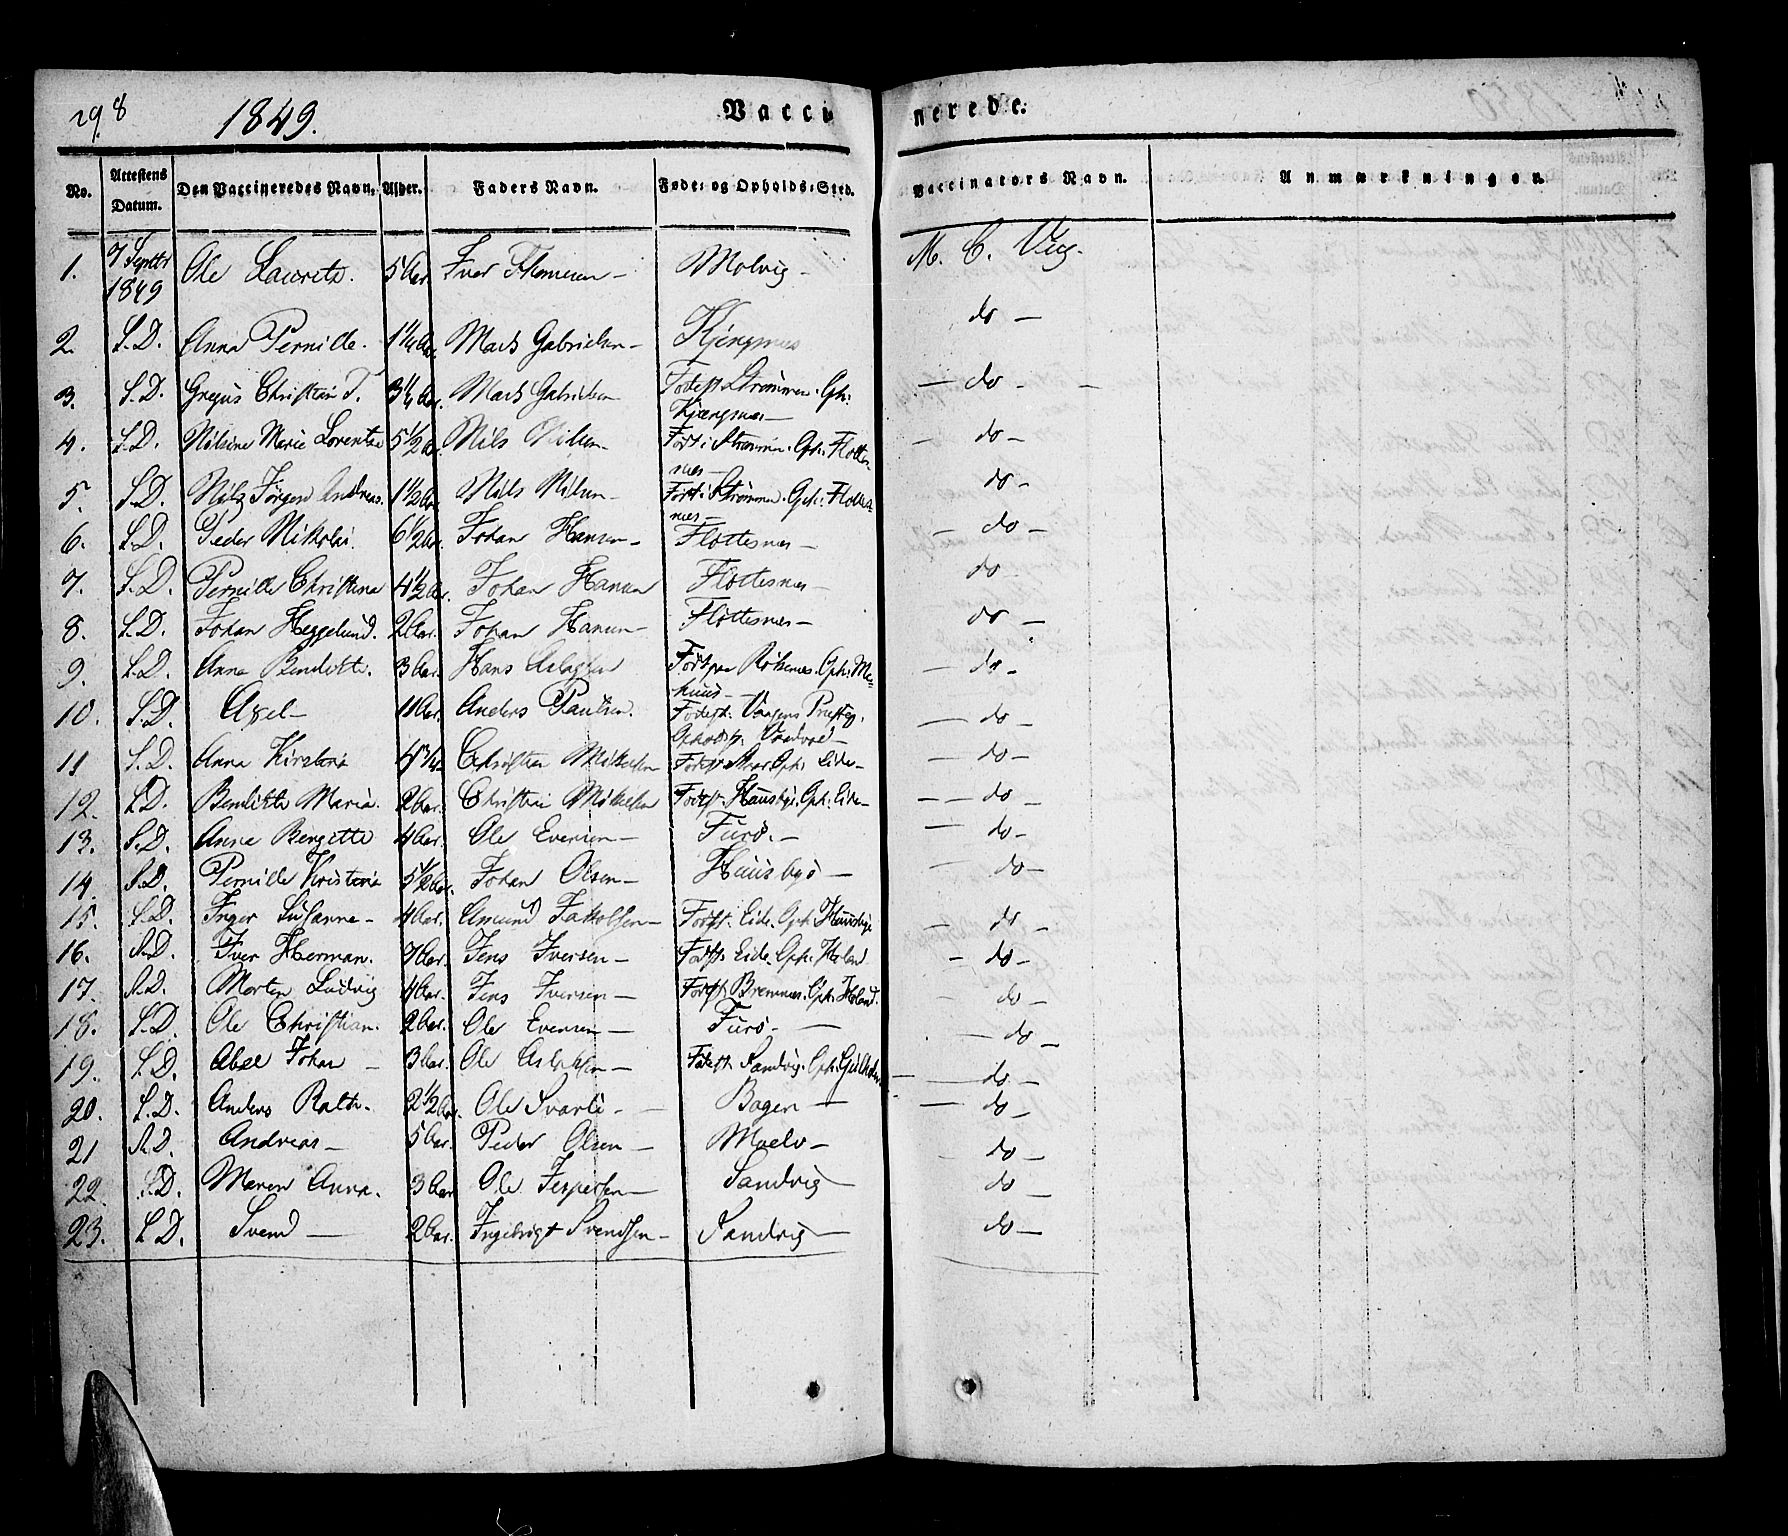 298 1849. Vaccinerede.
No. Attestens Datum. Den Vaccineredes Navn. Alder. Faders Navn. Føde- og Opholds-Sted. Vaccinators Navn. Anmærkninger.
1. 7 Septbr 1849 Ole Lauritz. 5 Aar Iver Thomesen – Molvig – M. C. Vig.
2. S. D. Anna Pernille. 1 1/4 Aar. Mads Gabrielsen – Kjengsnes do –
3. S. D. Gregus Christian T. 3 1/4 Aar. Mads Gabrielsen Fødest. Strømmen. Oph: Kjengsnes – – do –
4. S. D. Nilsine Marie Lorentze 5 1/2 A. Nils Nilsen – Født i Strømmen. Oph: Flottesnes – – do –
5. S. D. Nilz Jørgen Andreas. 1 1/2 Aar Nils Nilsen – Født i Strømmen. Oph: Flottesnes – do –
6. S. D. Peder Nikolai. 6 1/2 Aar. Johan Hansen – Flottesnes – – do –
7. S. D. Pernille Christina 4 1/2 Aar. Johan Hansen Flottesnes – do
8. S. D. Johan Heggelund. 2 Aar. Johan Hansen – Flottesnes – do –
9. S. D. Anna Benditte. 3 Aar Hans Aslagsen Født paa Roksenes. Oph: Mehuus – – do –
10. S. D. Axel – 11 Aar. Anders Paulsen. Fødest: Vaagens Præsteg. Opholdsst. – – do –
11 S. D. Anna Kirstine 4 3/4 Christen Mikelsen Fødest. Oph: Eide – – do –
12. S. D. Benditte Maria. 2 Aar. Christen Mikelsen Fødest. Hausbye. Oph: Eide – – – do –
13. S. D. Anne Bergitte 4 Aar. Ole Evensen – Furø. – – do –
14. S. D. Pernille Kristina 5 1/2 Aar. Johan Olsen – Hausbye – – do
15. S. D. Inger Susanne – 4 Aar. Amund Jakobsen – Fødest. Eide. Oph. Hausbye – do –
16. S. D. Iver Herman. 7 Aar. Jens Iversen – Fødest. Eide. Oph: Holand – do –
17. S. D. Morten Ludvig 4 Aar. Jens Iversen – Fødest. Bremnes. Oph: Holand. – do –
18. S. D. Ole Christian. 2 Aar. Ole Evensen – Furø. – – do –
19. S. D. Abel Johan – 3 Aar. Ole Aslaksen – Fødest. Sandvig. Oph. – do –
20. S. D. Anders Rath. 2 1/2 Aar. Ole Svarte. – Bogen – – do –
21 S. D. Andreas – 5 Aar. Peder Olsen – Maelv – – do –
22. S. D. Maren Anna. 3 Aar Ole Jespersen – Sandvig – do –
23. S. D. Svend – 2 Aar. Ingebrigt Svendsen – Sandvig – do –